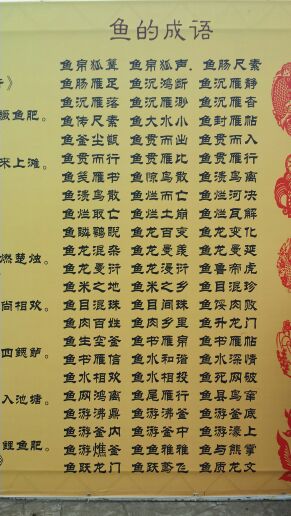 鱼的成语
鱼帛狐篝 鱼帛狐声 鱼肠尺素
鱼肠雁足 鱼沉鸿断 鱼沉雁静
鱼沉雁落 鱼沉雁渺 鱼沉雁杳
鱼传尺素 鱼大水小 鱼封雁帖
鱼釜尘甑 鱼贯而出 鱼贯而入
鱼贯而行 鱼贯雁比 鱼贯雁行
鱼笺雁书 鱼惊鸟散 鱼溃鸟离
鱼溃鸟散 鱼烂而亡 鱼烂河决
鱼烂取亡 鱼烂土崩 鱼烂瓦解
鱼鳞鹤睨 鱼龙百变 鱼龙变化
鱼龙混杂 鱼龙曼羡 鱼龙曼延
鱼龙曼衍 鱼龙漫衍 鱼鲁帝虎
鱼米之地 鱼米之乡 鱼目混珍
鱼目混珠 鱼目间珠 鱼馁肉败
鱼肉百姓 鱼肉乡里 鱼升龙门
鱼生空釜 鱼书雁帛 鱼书雁帖
鱼书雁信 鱼水和谐 鱼水深情
鱼水相欢 鱼水相投 鱼死网破
鱼网鸿离 鱼尾雁行 鱼县鸟窜
鱼游沸鼎 鱼游沸釜 鱼游釜底
鱼游釜内 鱼游釜中 鱼游濠上
鱼游燋釜 鱼鱼雅雅 鱼与熊掌
鱼跃龙门 鱼跃鸢飞 鱼质龙文
鳜鱼肥。
米上滩。
燃楚烛。
尚相欢。
四鳃鲈。
入池塘。
鲤鱼肥。